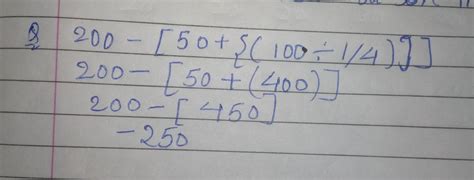 Q 200 - [50 + {(100 ÷ 1/4)}]
200 - [50 + (400)]
200 - [450]
-250